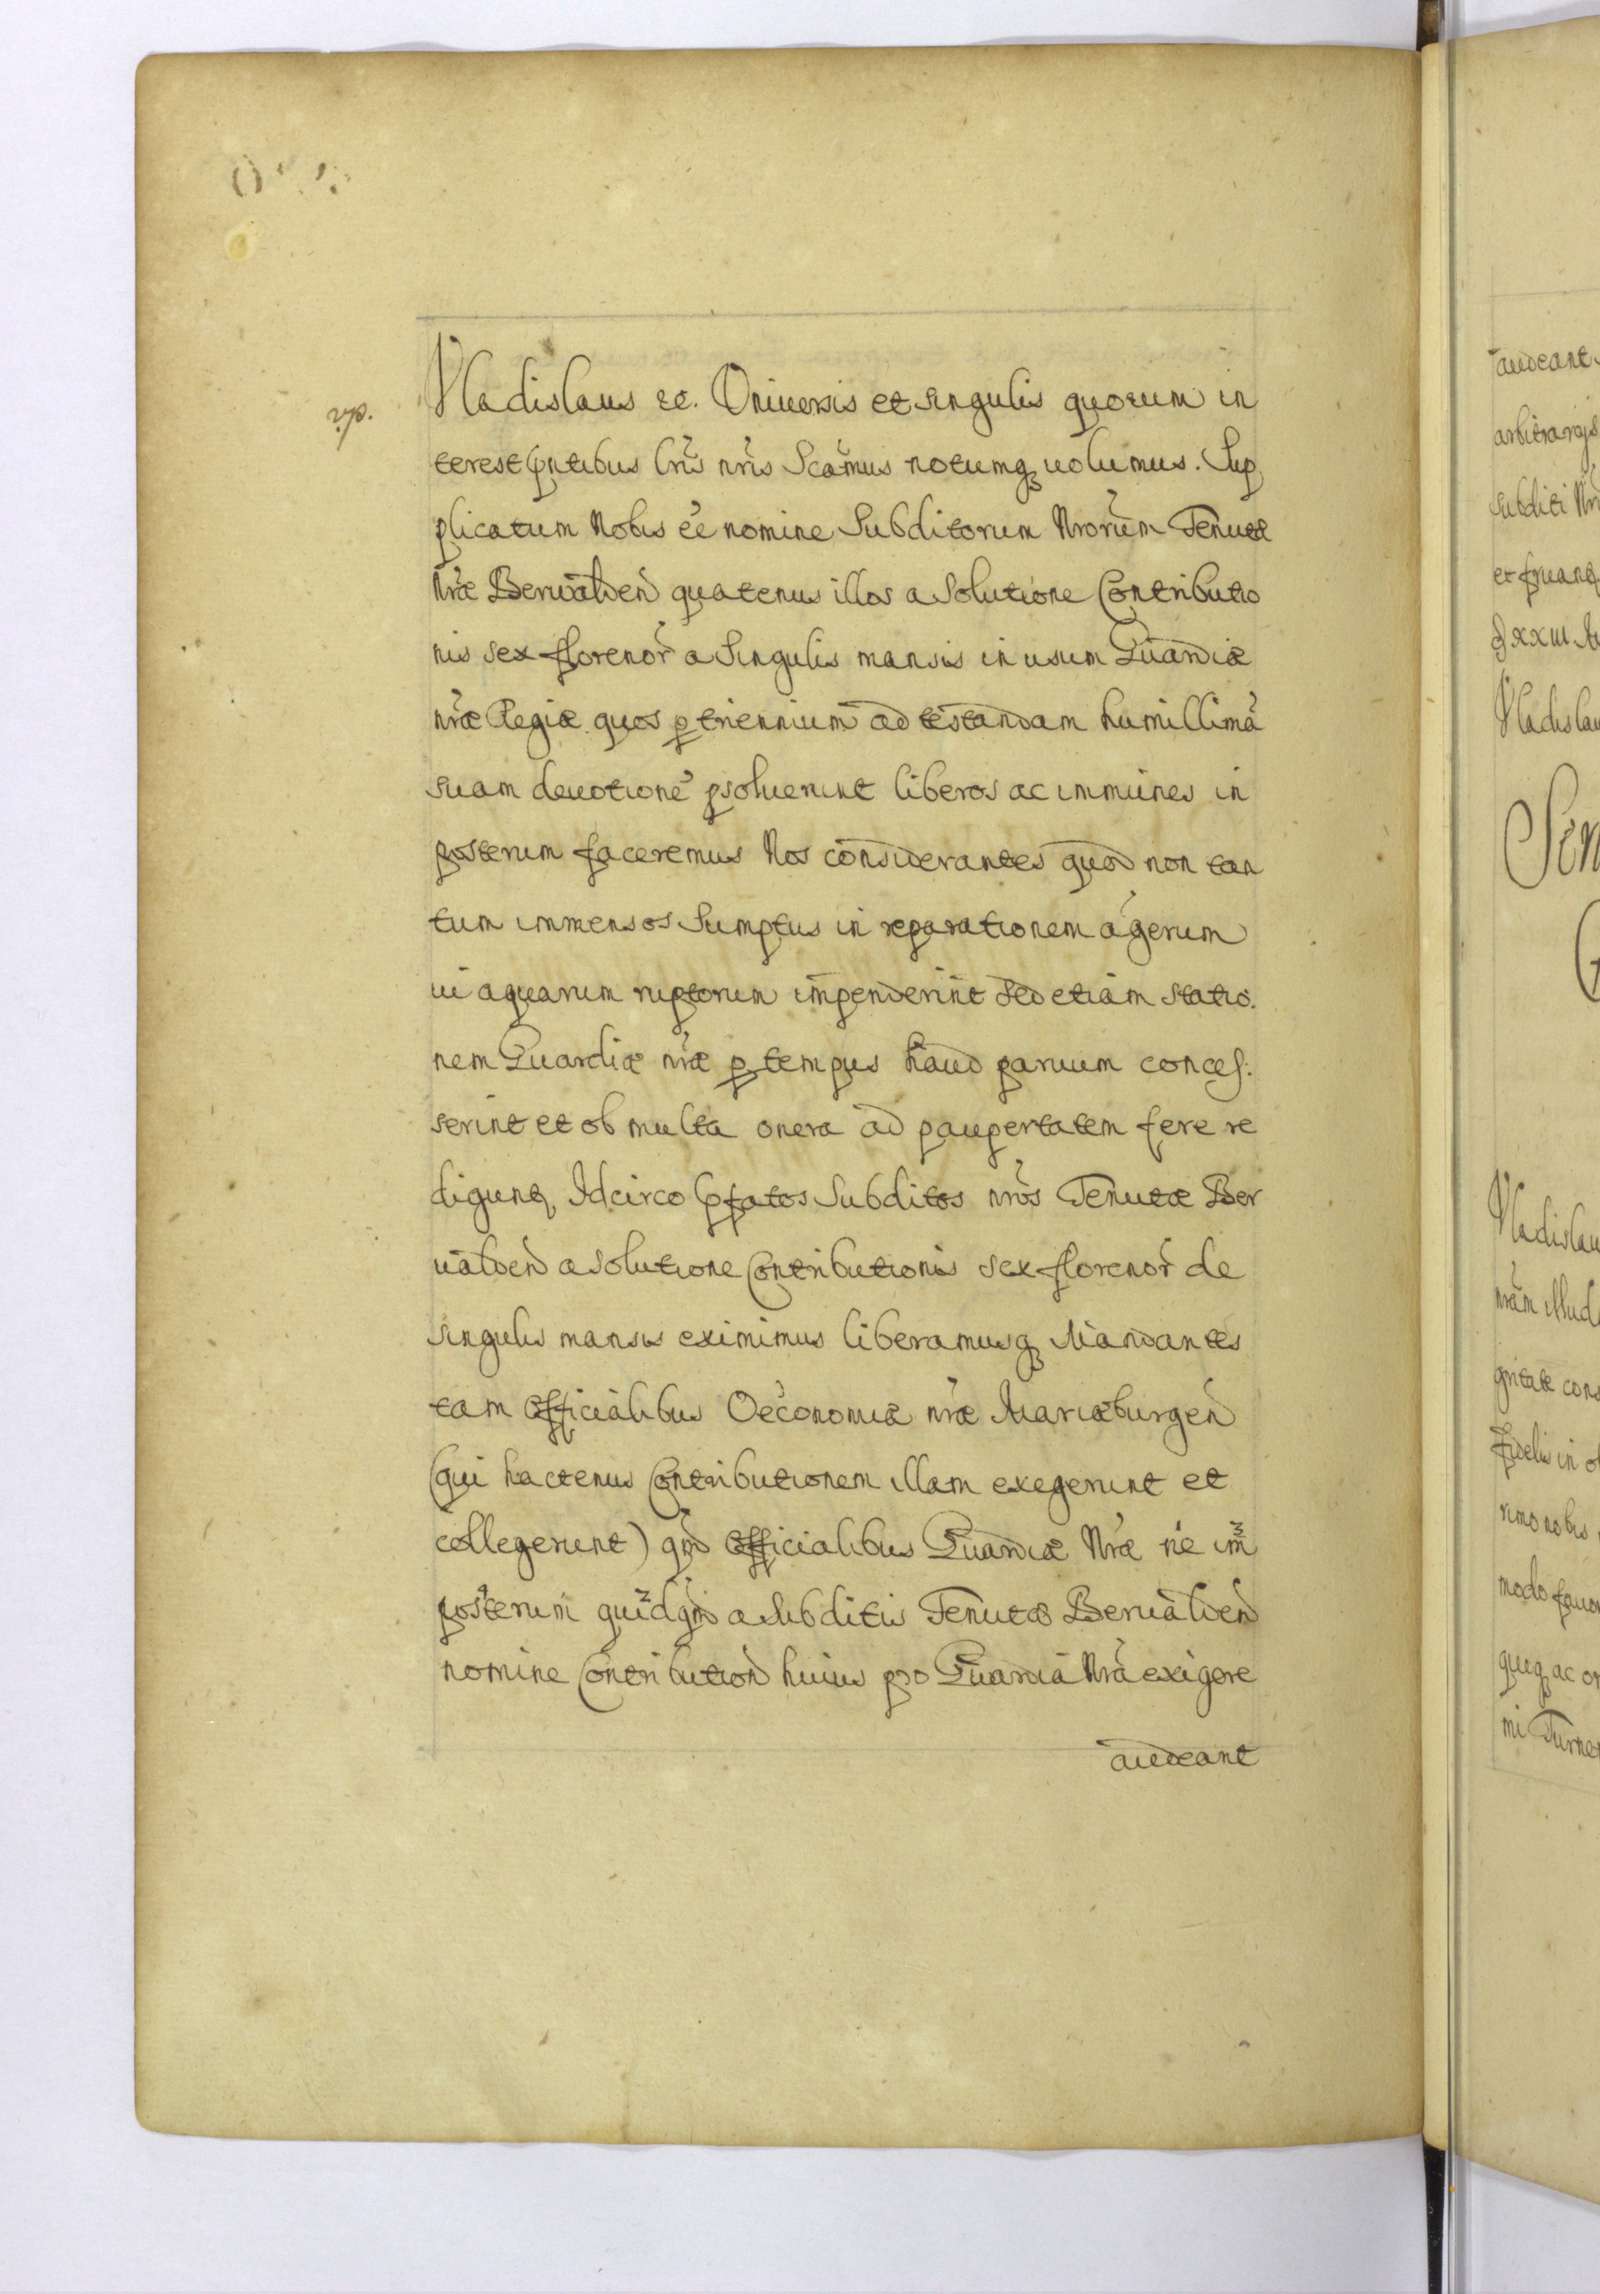 Vladislaus ec. Universis et singulis quorum in
terest pntibus lris nris Scamus notumq volumus. Sup
plicatum Nobis ee nomine Subditorum Nrorum Tenutæ
Nræ Berwalden quatenus illos a solutione Contributio
nis sex florenor a singulis mansis in usum Guardiæ
nræ Regiæ quos p triennium ad testandam humillima
suam devotione psoluerint liberos ac immunes in
posterum faceremus Nos considerantes quod non tan
tum immensos Sumptus in reparationem agerum
ui aquarum ruptorum impenderint sed etiam statio.
nem Guardiæ nræ p tempus haud paruum conces:
serint et ob multa onera ad paupertatem fere re
digunt, Idcirco pfatos Subditos nros Tenutæ Ber
ualden a solutione Contributionis sex florenor de
singulis mansis eximimus liberamusq Mandantes
tam officialibus Oeconomiæ nræ Mariæburgen
(qui hactenus Contributionem illam exegerunt et
collegerunt) qm officialibus Guardiæ Nræ ne im
posterum quidqm a subditis Tenutæ Berualden
nomine Contribution huius pro Guardia Nra exigere
audeant